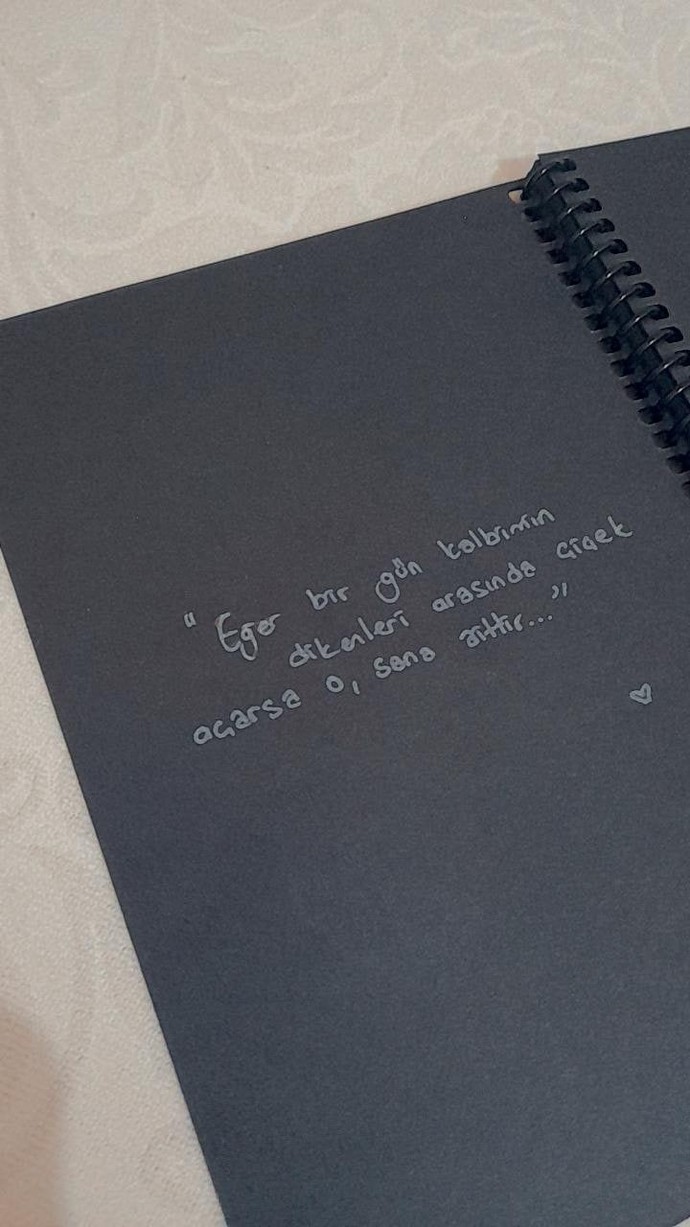 “ Eğer bir gün kalbimin
dikenleri arasında çiçek
açarsa o, sana aittir... ”
♡